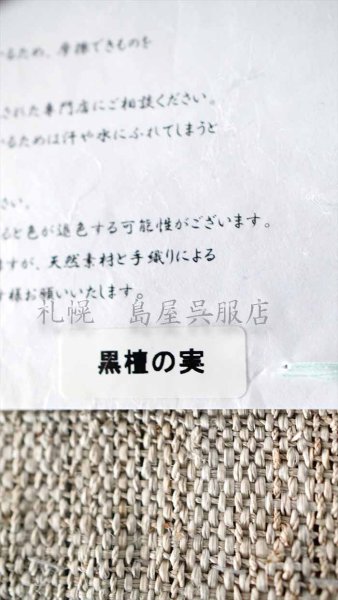 るため、摩擦できものを
された専門店にご相談ください。
いるためは汗や水にふれてしまうと
さい。
ると色が退色する可能性がございます。
ますが、天然素材と手織りによる
す様お願いいたします。
札幌 島屋呉服店
黒檀の実